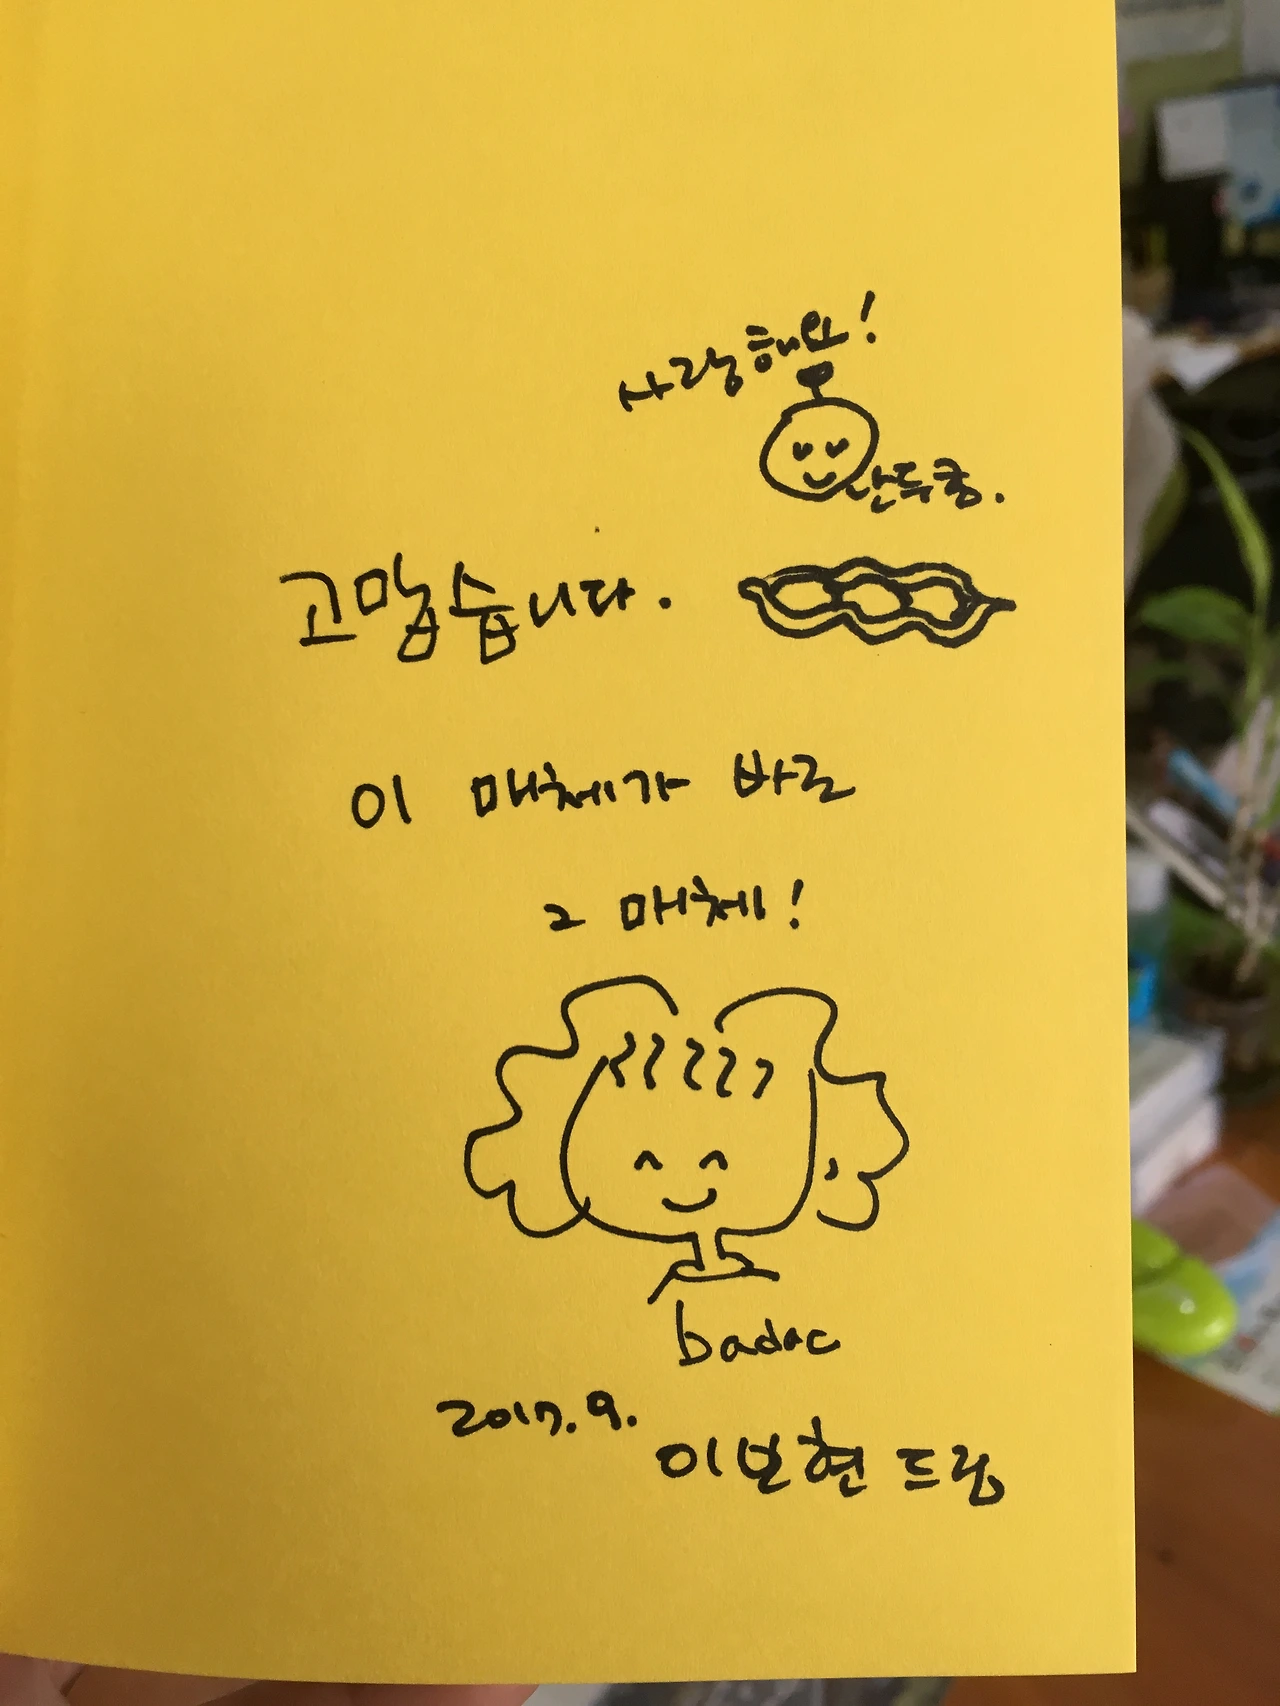 사랑해요!
완두콩.
고맙습니다.
이 매체가 바로
그 매체!
badac
2017.9.
이보현 드림